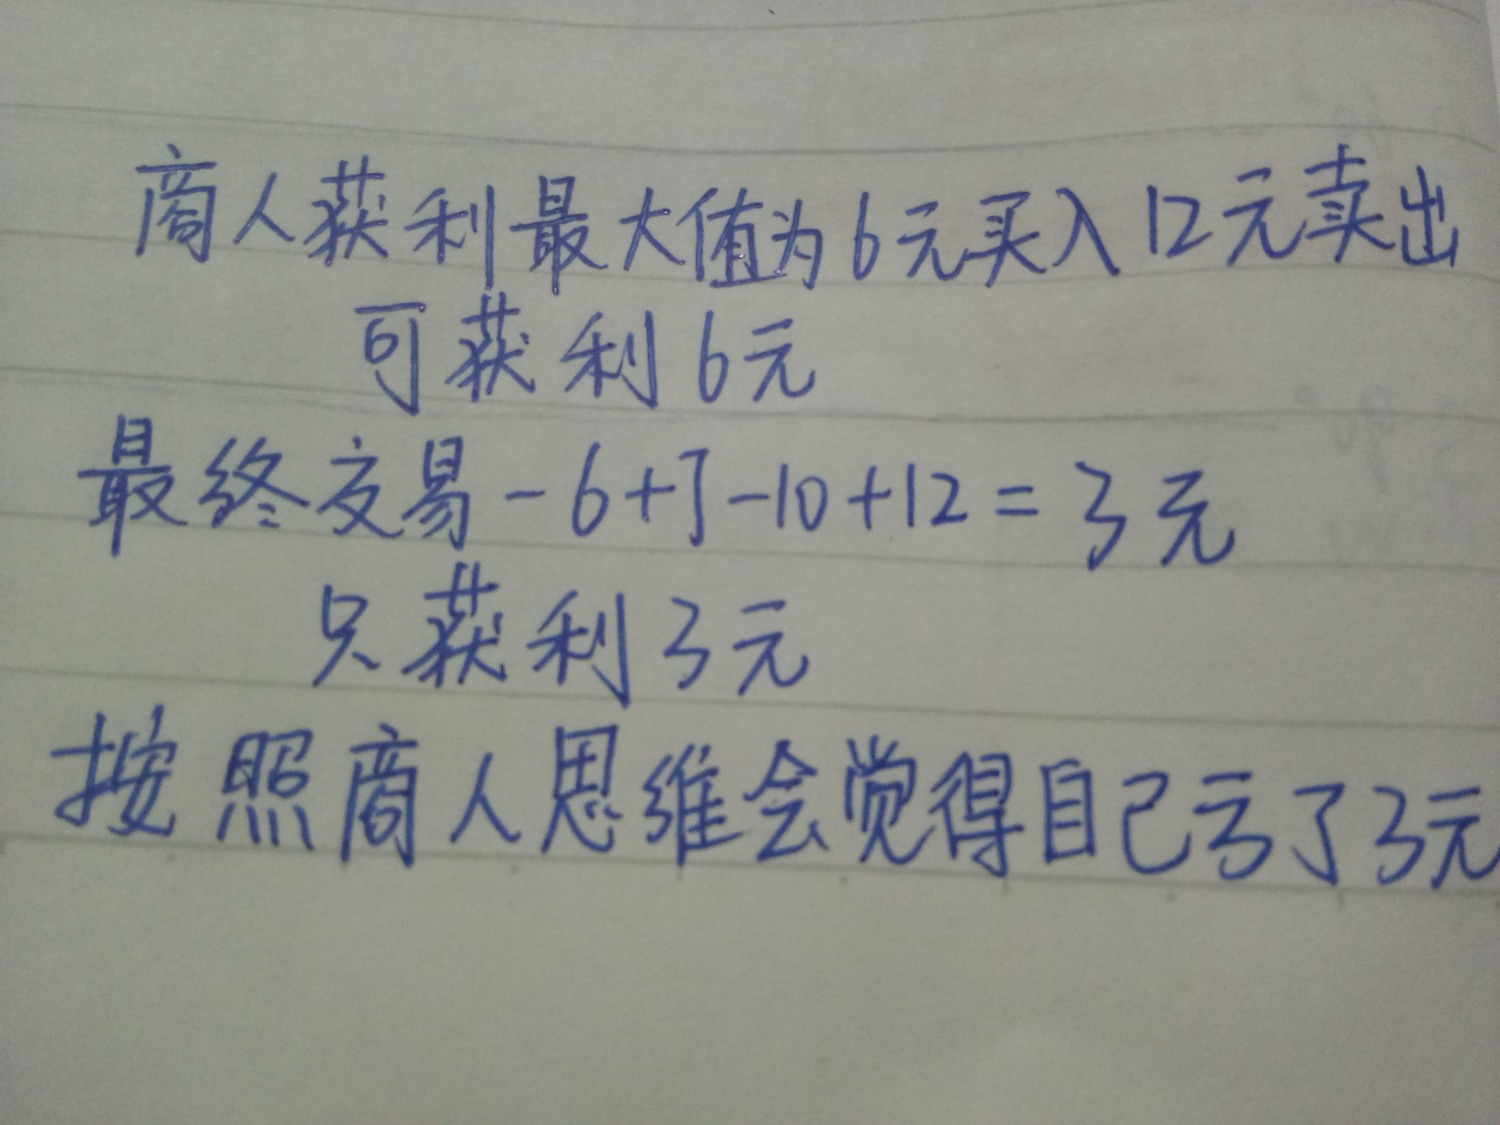 商人获利最大值为6元买入12元卖出
可获利6元
最终交易-6+7-10+12=3元
只获利3元
按照商人思维会觉得自己亏了3元